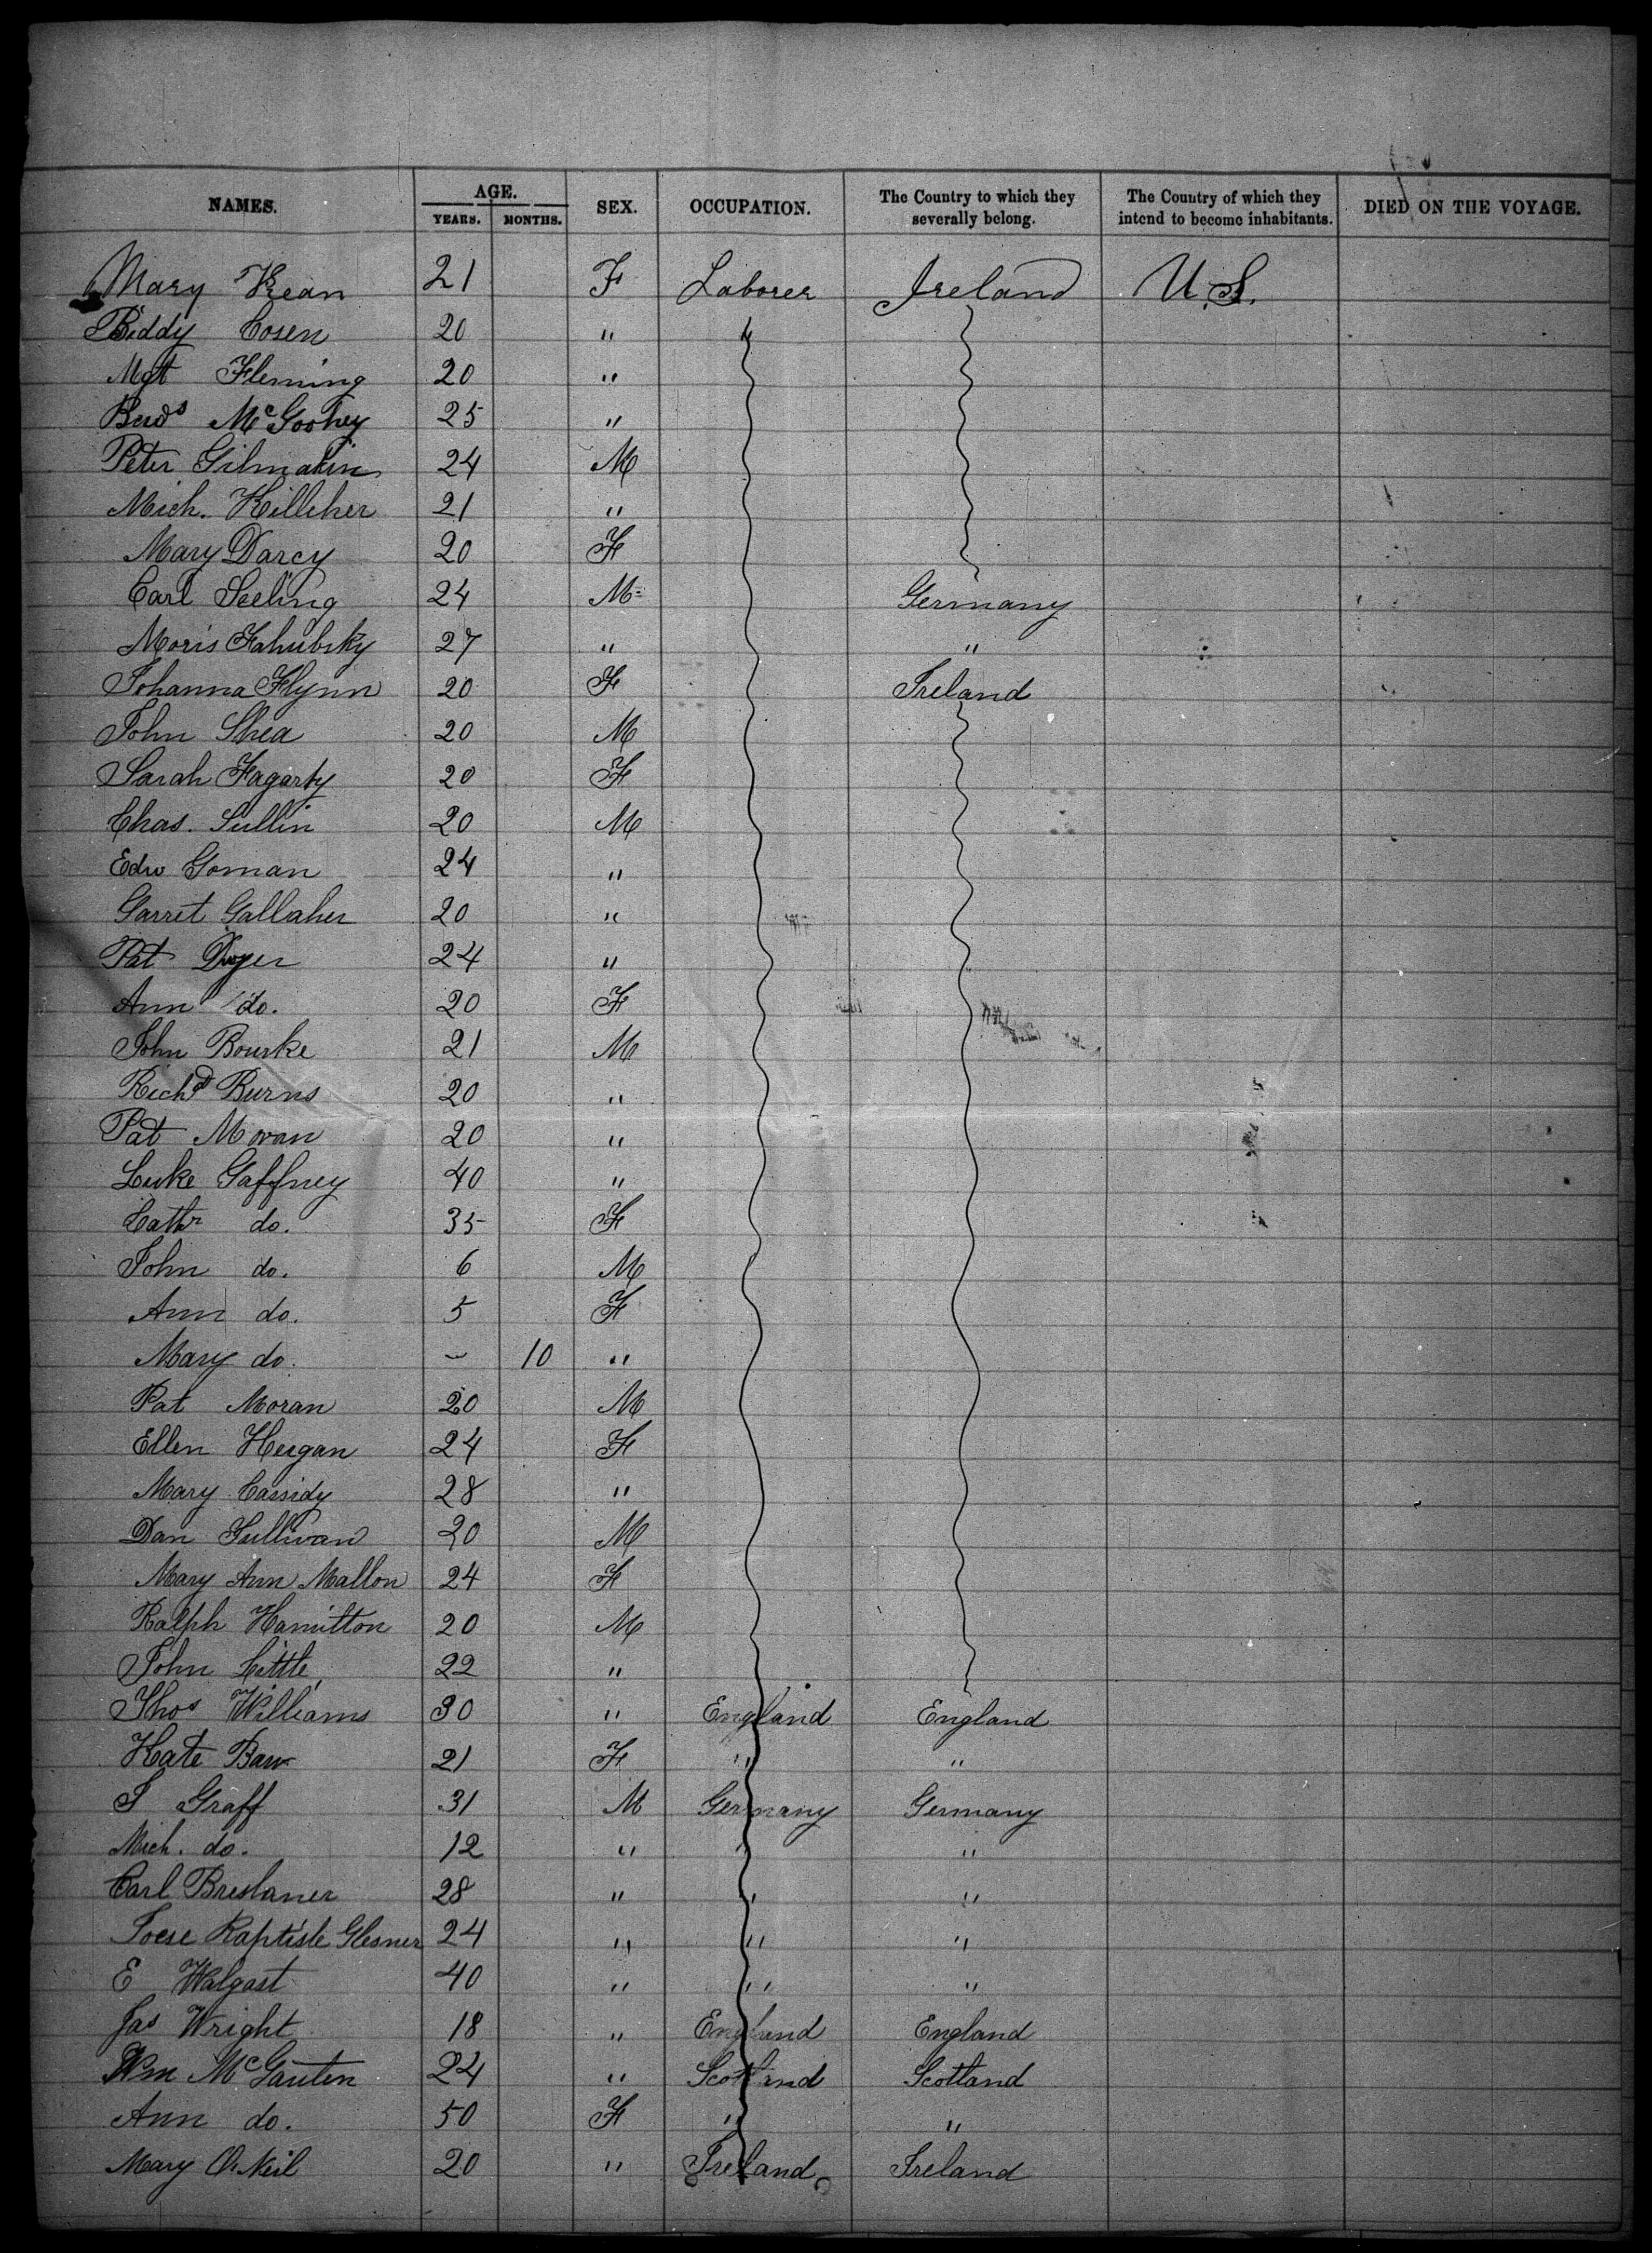 NAMES. AGE. SEX. OCCUPATION. The Country to which they severally belong. The Country of which they intend to become inhabitants. DIED ON THE VOYAGE.
YEARS. MONTHS.
Mary Kean 21 F Laborer Ireland U.S.
Biddy Cosen 20 "  "
Mgt Fleming 20 "
McGoohey 25 "
Peter Gilmakin 24 M
Mich. Killeher 21 "
Mary Darcy 20 F
Carl Seeling 24 M Germany
Moris 27 " "
Johanna Flynn 20 F Ireland
John Shea 20 M
Sarah Fagarty 20 F
Chas. Sullin 20 M
Edw Goman 24 "
Garret Gallaher 20 "
Pat Dwyer 24 "
Ann do. 20 F
John Bourke 21 M
Richd Burns 20 "
Pat Moran 20 "
Luke Gaffney 40 "
Cathr do. 35 F
John do. 6 M
Ann do. 5 F
Mary do. – 10 "
Pat Moran 20 M
Ellen Hergan 24 F
Mary Cassidy 28 "
Dan Sullivan 20 M
Mary Ann Mallon 24 F
Ralph Hamilton 20 M
John Little 22 "
Thos Williams 30 " England England
Kate Barr 21 F " "
S Graff 31 M Germany Germany
Mich. do. 12 " " "
Carl Breslaner 28 " " "
Baptiste Glesner 24 " " "
E Walgast 40 " " "
Jas Wright 18 " England England
Wm McGauten 24 " Scotland Scotland
Ann do. 50 F " "
Mary O'Neil 20 " Ireland Ireland